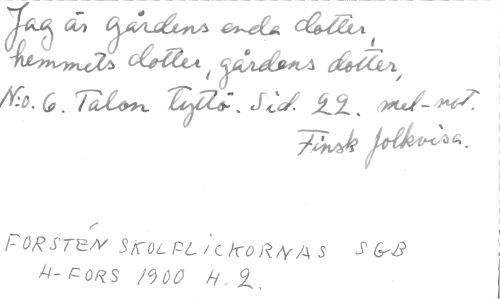 Jag är gårdens enda dotter,
hemmets dotter, gårdens dotter,
N:o. 6. Talon tyttö. Sid. 22. mel-not.
Finsk folkvisa.
FORSTÉN SKOLFLICKORNAS SGB
H-FORS 1900 H. 2.